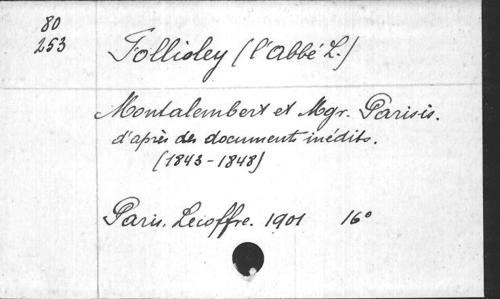 80
253
Follioley (l'abbé L.)
Montalembert et Mgr. Parisis.
d'après des documents inédits.
(1843-1848)
Paris. Lecoffre. 1901 16°